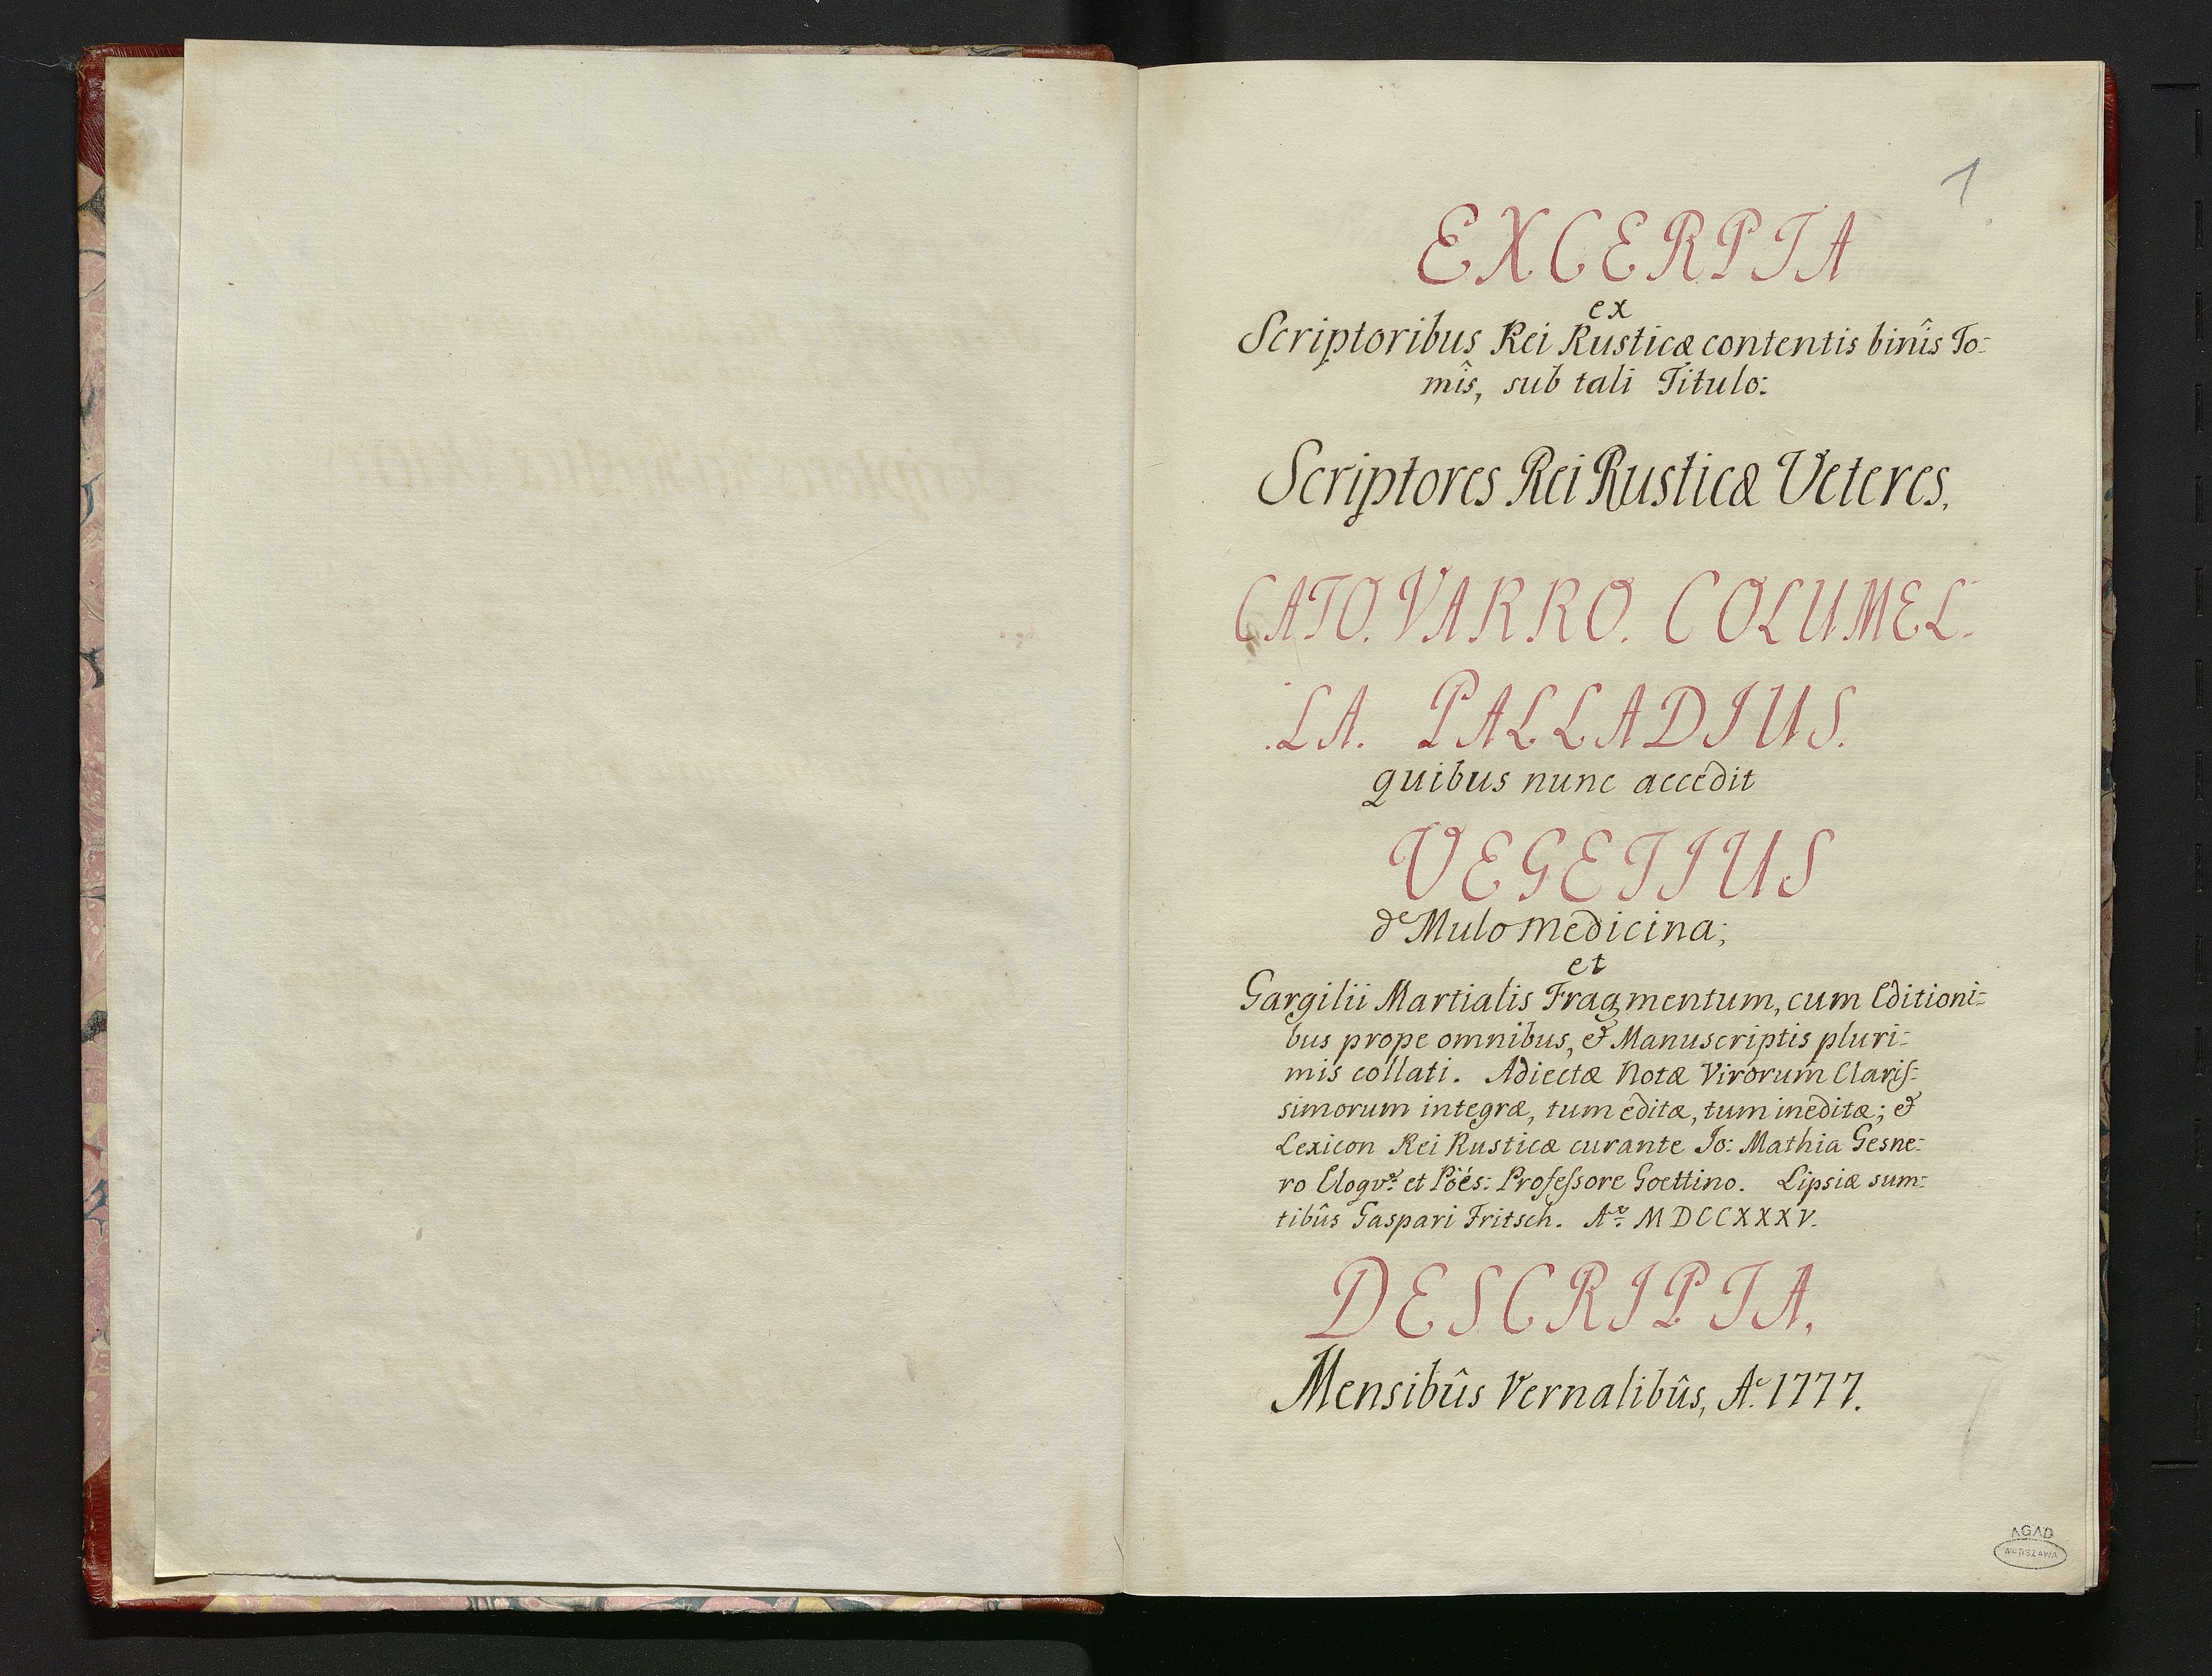 1
EXCERPTA
ex
Scriptoribus Rei Rusticæ contentis binîs To=
mîs, sub tali Titulo:
Scriptores Rei Rusticæ Veteres.
CATO. VARRO. COLUMEL=
LA. PALLADIUS.
quibus nunc accedit
VEGETIUS
de Mulo Medicina;
et
Gargilii Martialis Fragmentum, cum Editioni=
bus prope omnibus, & Manuscriptis pluri=
mis collati. Adiectæ Notæ Virorum Clariſ=
simorum integræ, tum editæ, tum ineditæ; &
Lexicon Rei Rusticæ curante Jo: Mathia Gesne=
ro Eloqv: et Poës: Profeſsore Goettino. Lipsiæ sum=
tibûs Gaspari Fritsch. Aº MDCCXXXV.
DESCRIPTA,
Mensibûs Vernalibûs, Aº 1777.
AGAD
WARSZAWA